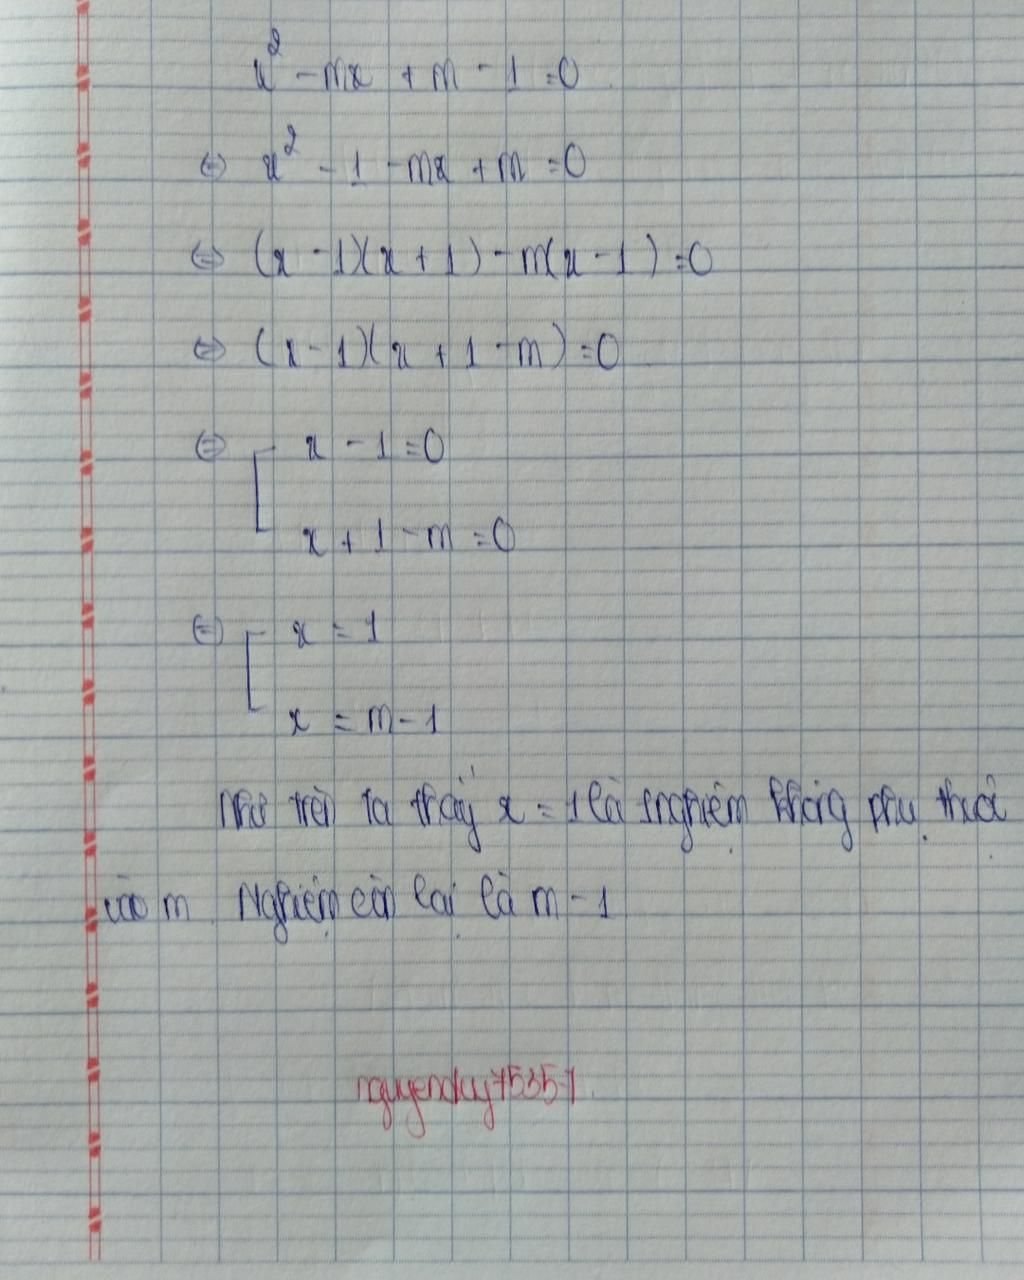 x² - mx + m - 1 = 0
⇔ x² - 1 - mx + m = 0
⇔ (x - 1)(x + 1) - m(x - 1) = 0
⇔ (x - 1)(x + 1 - m) = 0
⇔ [ x - 1 = 0
x + 1 - m = 0
⇔ [ x = 1
x = m - 1
Như trên ta thấy x = 1 là 1 nghiệm không phụ thuộc
vào m. Nghiệm còn lại là m - 1